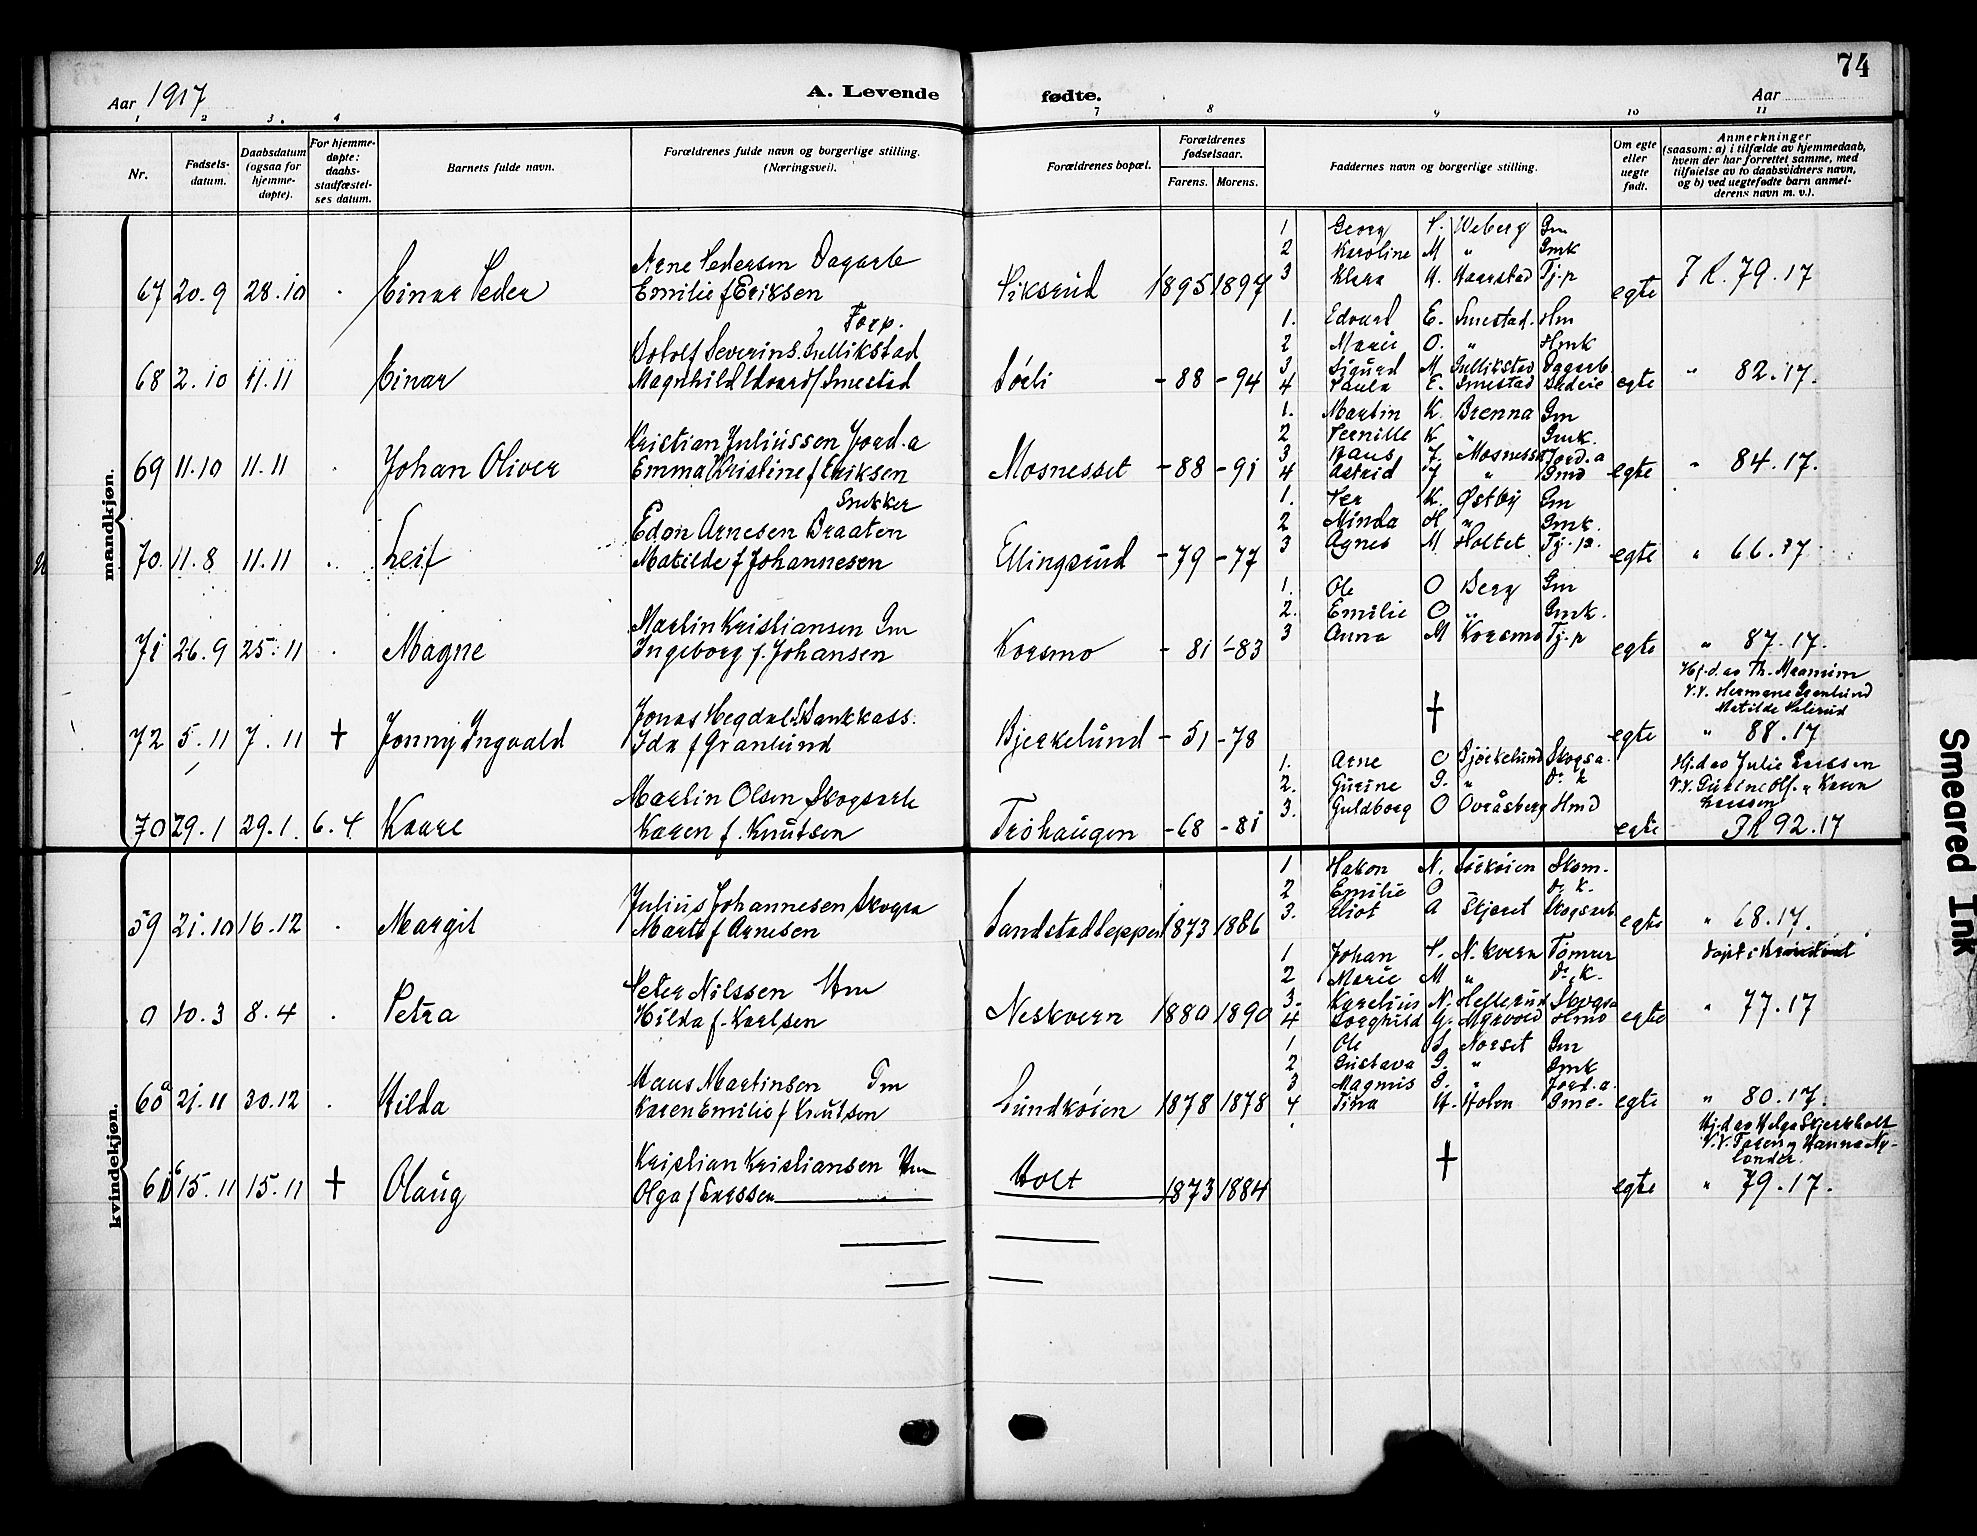 74
Aar 1917
A. Levende
fødte.
Aar
1 2 3. 4
7 8 9 10 11
Nr.
Fødsels-
datum.
Daabsdatum
(ogsaa for
hjemme-
døpte).
For hjemme-
døpte:
daabs-
stadfæstel-
ses datum.
Barnets fulde navn.
Forældrenes fulde navn og borgerlige stilling.
(Næringsvei).
Forældrenes bopæl.
Forældrenes
fødselsaar.
Farens. Morens.
Faddernes navn og borgerlige stilling.
Om egte
eller
uegte
født.
Anmerkninger
(saasom: a) i tilfælde av hjemmedaab,
hvem der har forrettet samme, med
tilføielse av to daabsvidners navn,
og b) ved uegtefødte barn anmel-
derens navn m. v.).
mandkjøn.
1 Georg P. Weberg Gm
2 Karoline M " Gmk
3 Klara H. Kaarstad Tj.p
Arne Pedersen Dagarb
67 20.9 28.10 Einar Peder Emilie f Eriksen Siksrud 1895 1897 egte FR. 79.17
Forp.
1. Edvard E. Smestad. Hm
2 Marie O. " Hmk
3 Sigurd M Gullikstad Dagarb.
4 Paula E. Smestad
Severins. Gullikstad
68 2.10 11.11 Einar Magnhild Edvard f Smestad Sørli -88 -94 egte " 82.17.
1. Martin K. Brenna Gm
2 Pernille K " Gmk.
3 Hans J. Mosnesset Jord.a
4 Astrid J " Gmd
Kristian Juliussen Jord.a
69 11.10 11.11 Johan Oliver Emma Kristine f Eriksen Mosnesset -88 -91 egte " 84.17.
Snekker
1. Per K. Østby Gm
2 Minda H. " Gmk.
3 Agnes M Holtet Tj.p.
Edon Arnesen Braaten
70 11.8 11.11 Leif Matilde f Johannesen Ellingsrud -79 -77 egte " 66.17
1. Ole O Berg Gm
2. Emilie O " Gmk.
3 Anna M Korsmo Tj.p
Martin Kristiansen Gm
71 26.9 25.11 Magne Ingeborg f. Johansen Korsmo -81 -83 egte " 87.17.
Hj.d. av Th.
V.V. Hermane Granlund
Matilde
Jonas Hegdal Bankkass.
72 5.11 7.11 + Jonny Ingvald Ida f Granlund Bjerkelund -51 -78 + egte " 88.17
1. Arne O Bjørkelund Skogsa.
2. Gurine G. " Do k
3. Guldborg O Overåsberg Hmd
Hj.d av Julie Erissen
V.V. Gubine Olf. og Karen
Erissen
Martin Olsen Skogsarb
70 29.1 29.1. 6.4 Kaare Karen f. Knutsen Trohaugen -68 -81 egte FR 92.17
kvindekjøn.
1 Hakon N. Sørkøien Skom.
2 Emilie O Do k.
3. Eliot A Stjaret Skogsarb
Julius Johannesen Skogsa
59 21.10 16.12 Margit Marta f Arnesen Sandstadleppen 1873 1886 egte " 68.17.
1 Johan P. N. kvern Tømrer
2 Marie M " Do k.
3. Karelius N. Hellerud Skogsa
4 Borghild G. Myrvold Hmd
Døpt i
Peter Nilssen Hm
0 10.3 8.4 Petra Hilda f. Karlsen Neskvern 1880 1890 egte " 77.17
1 Ole S. Norset Gm
2 Gustava G. " Gmk
3 Magnus G. " Jord.a.
4 Tina H. Holen Gme.
Hans Martinsen Gm
60 21.11 30.12 Hilda Karen Emilie f Knutsen Lundkøien 1878 1878 egte " 80.17.
Hj.d av Helga Bjerkholt
V.V. Taren og Hanna Ny-
lander.
Kristian Kristiansen Hm
61 15.11 15.11 + Olaug Olga f Erissen Holt 1873 1884 + egte " 79.17.
Smeared Ink